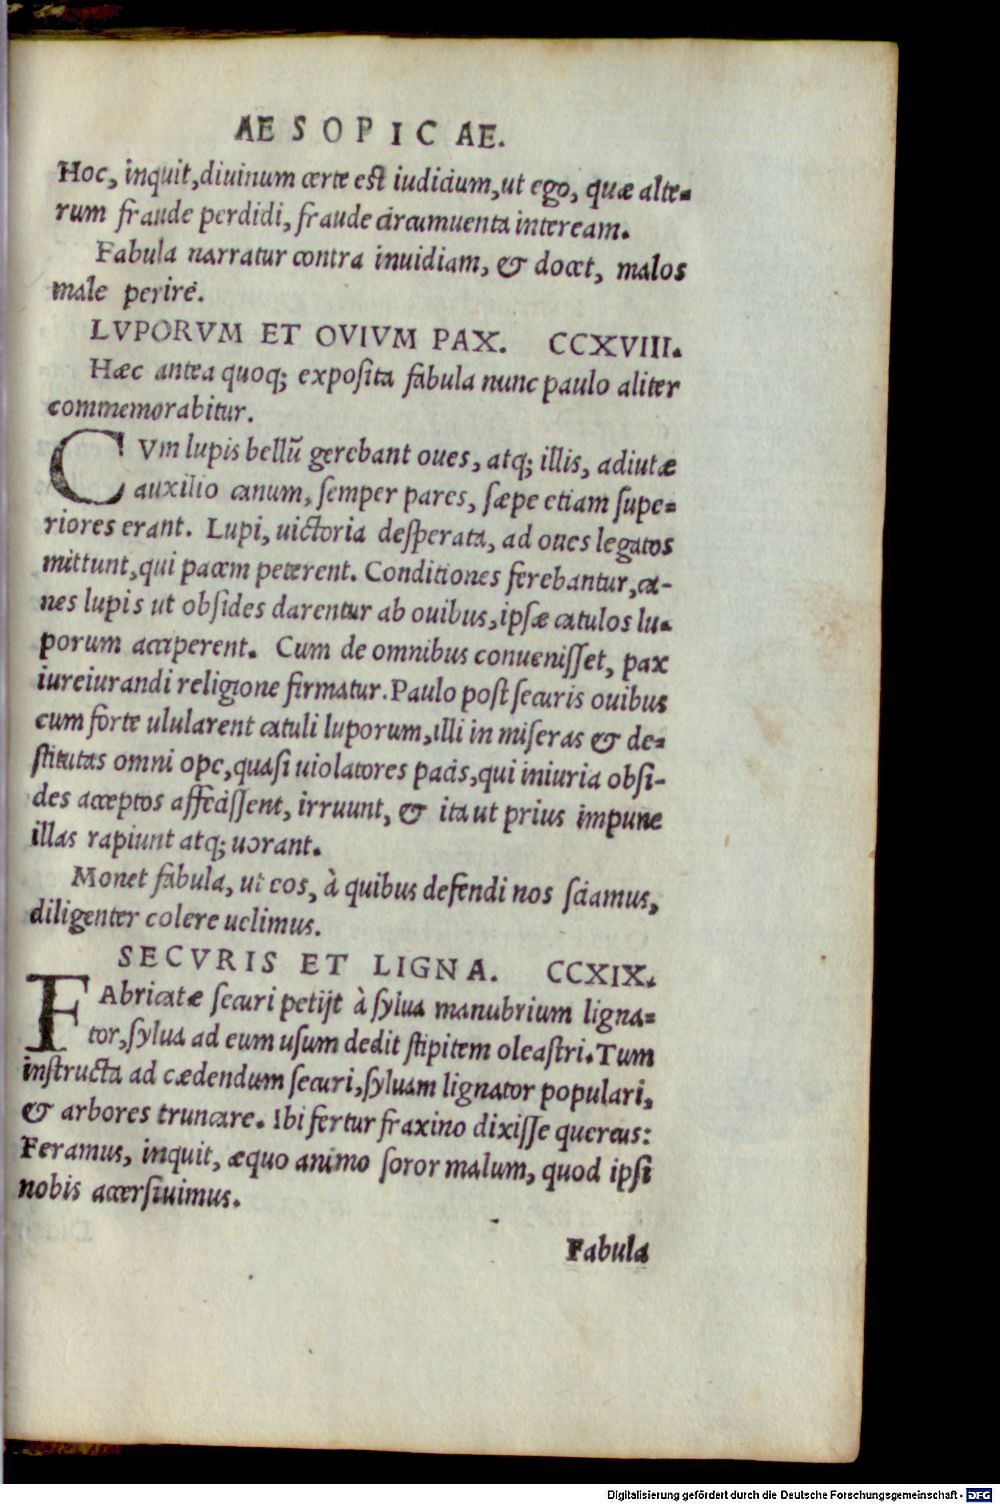 AESOPICAE.
Hoc, inquit, diuinum certe est iudicium, ut ego, quæ alte-
rum fraude perdidi, fraude circumuenta inteream.
Fabula narratur contra inuidiam, & docet, malos
male perire.
LVPORVM ET OVIVM PAX. CCXVIII.
Hæc antea quoq; exposita fabula nunc paulo aliter
commemorabitur.
CVm lupis bellũ gerebant oues, atq; illis, adiutæ
auxilio canum, semper pares, sæpe etiam supe-
riores erant. Lupi, uictoria desperata, ad oues legatos
mittunt, qui pacem peterent. Conditiones ferebantur, ca-
nes lupis ut obsides darentur ab ouibus, ipsæ catulos lu-
porum acciperent. Cum de omnibus conuenisset, pax
iureiurandi religione firmatur. Paulo post securis ouibus
cum forte ulularent catuli luporum, illi in miseras & de-
stitutas omni ope, quasi uiolatores pacis, qui iniuria obsi-
des acceptos affecissent, irruunt, & ita ut prius impune
illas rapiunt atq; uorant.
Monet fabula, ut eos, à quibus defendi nos sciamus,
diligenter colere uelimus.
SECVRIS ET LIGNA. CCXIX.
FAbricatæ securi petijt à sylua manubrium ligna-
tor, sylua ad eum usum dedit stipitem oleastri. Tum
instructa ad cædendum securi, syluam lignator populari,
& arbores truncare. Ibi fertur fraxino dixisse quercus:
Feramus, inquit, æquo animo soror malum, quod ipsi
nobis accersiuimus.
Fabula
Digitalisierung gefördert durch die Deutsche Forschungsgemeinschaft - DFG